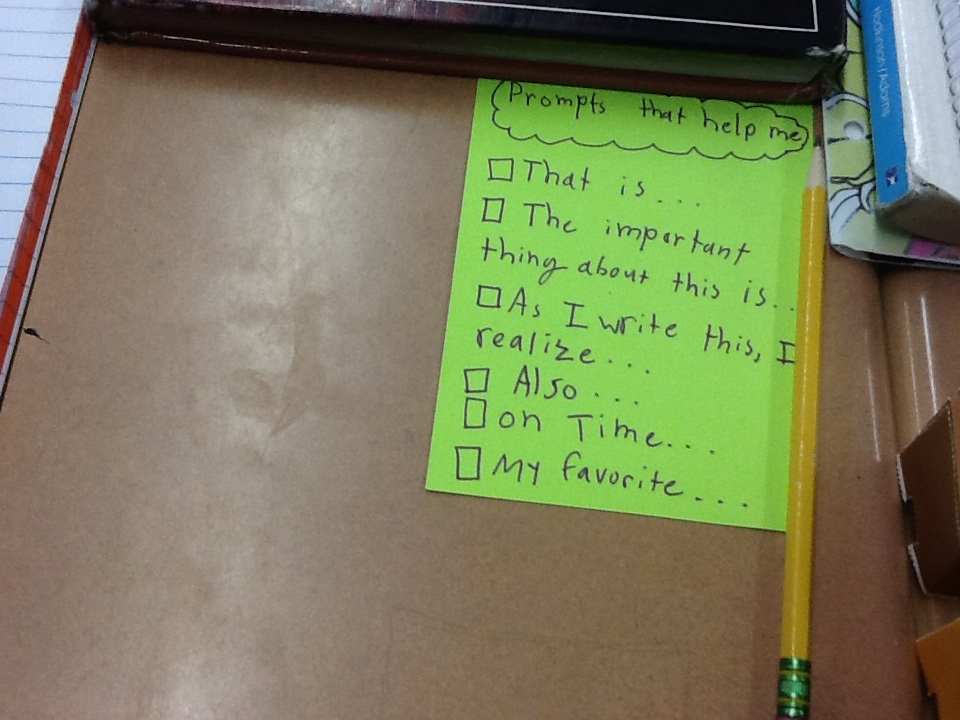 Prompts that help me
That is...
The important
thing about this is...
As I write this, I
realize...
Also...
on Time...
My favorite....